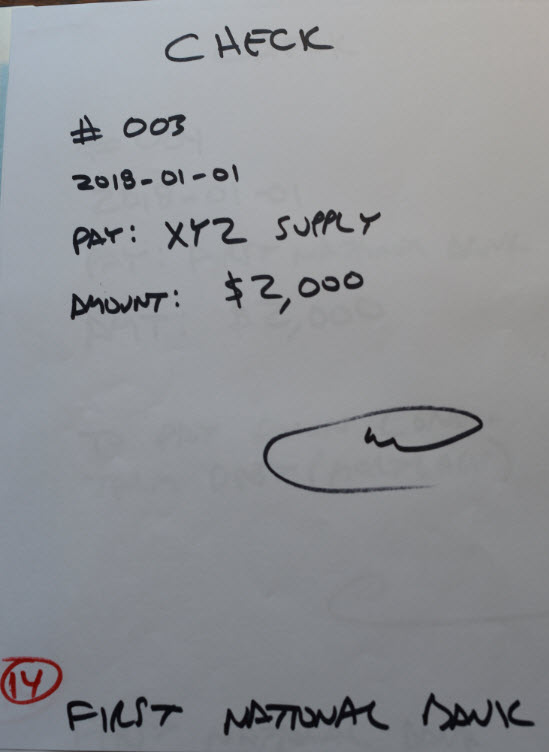 CHECK
# 003
2018-01-01
PAY: XYZ SUPPLY
AMOUNT: $2,000
14
FIRST NATIONAL BANK